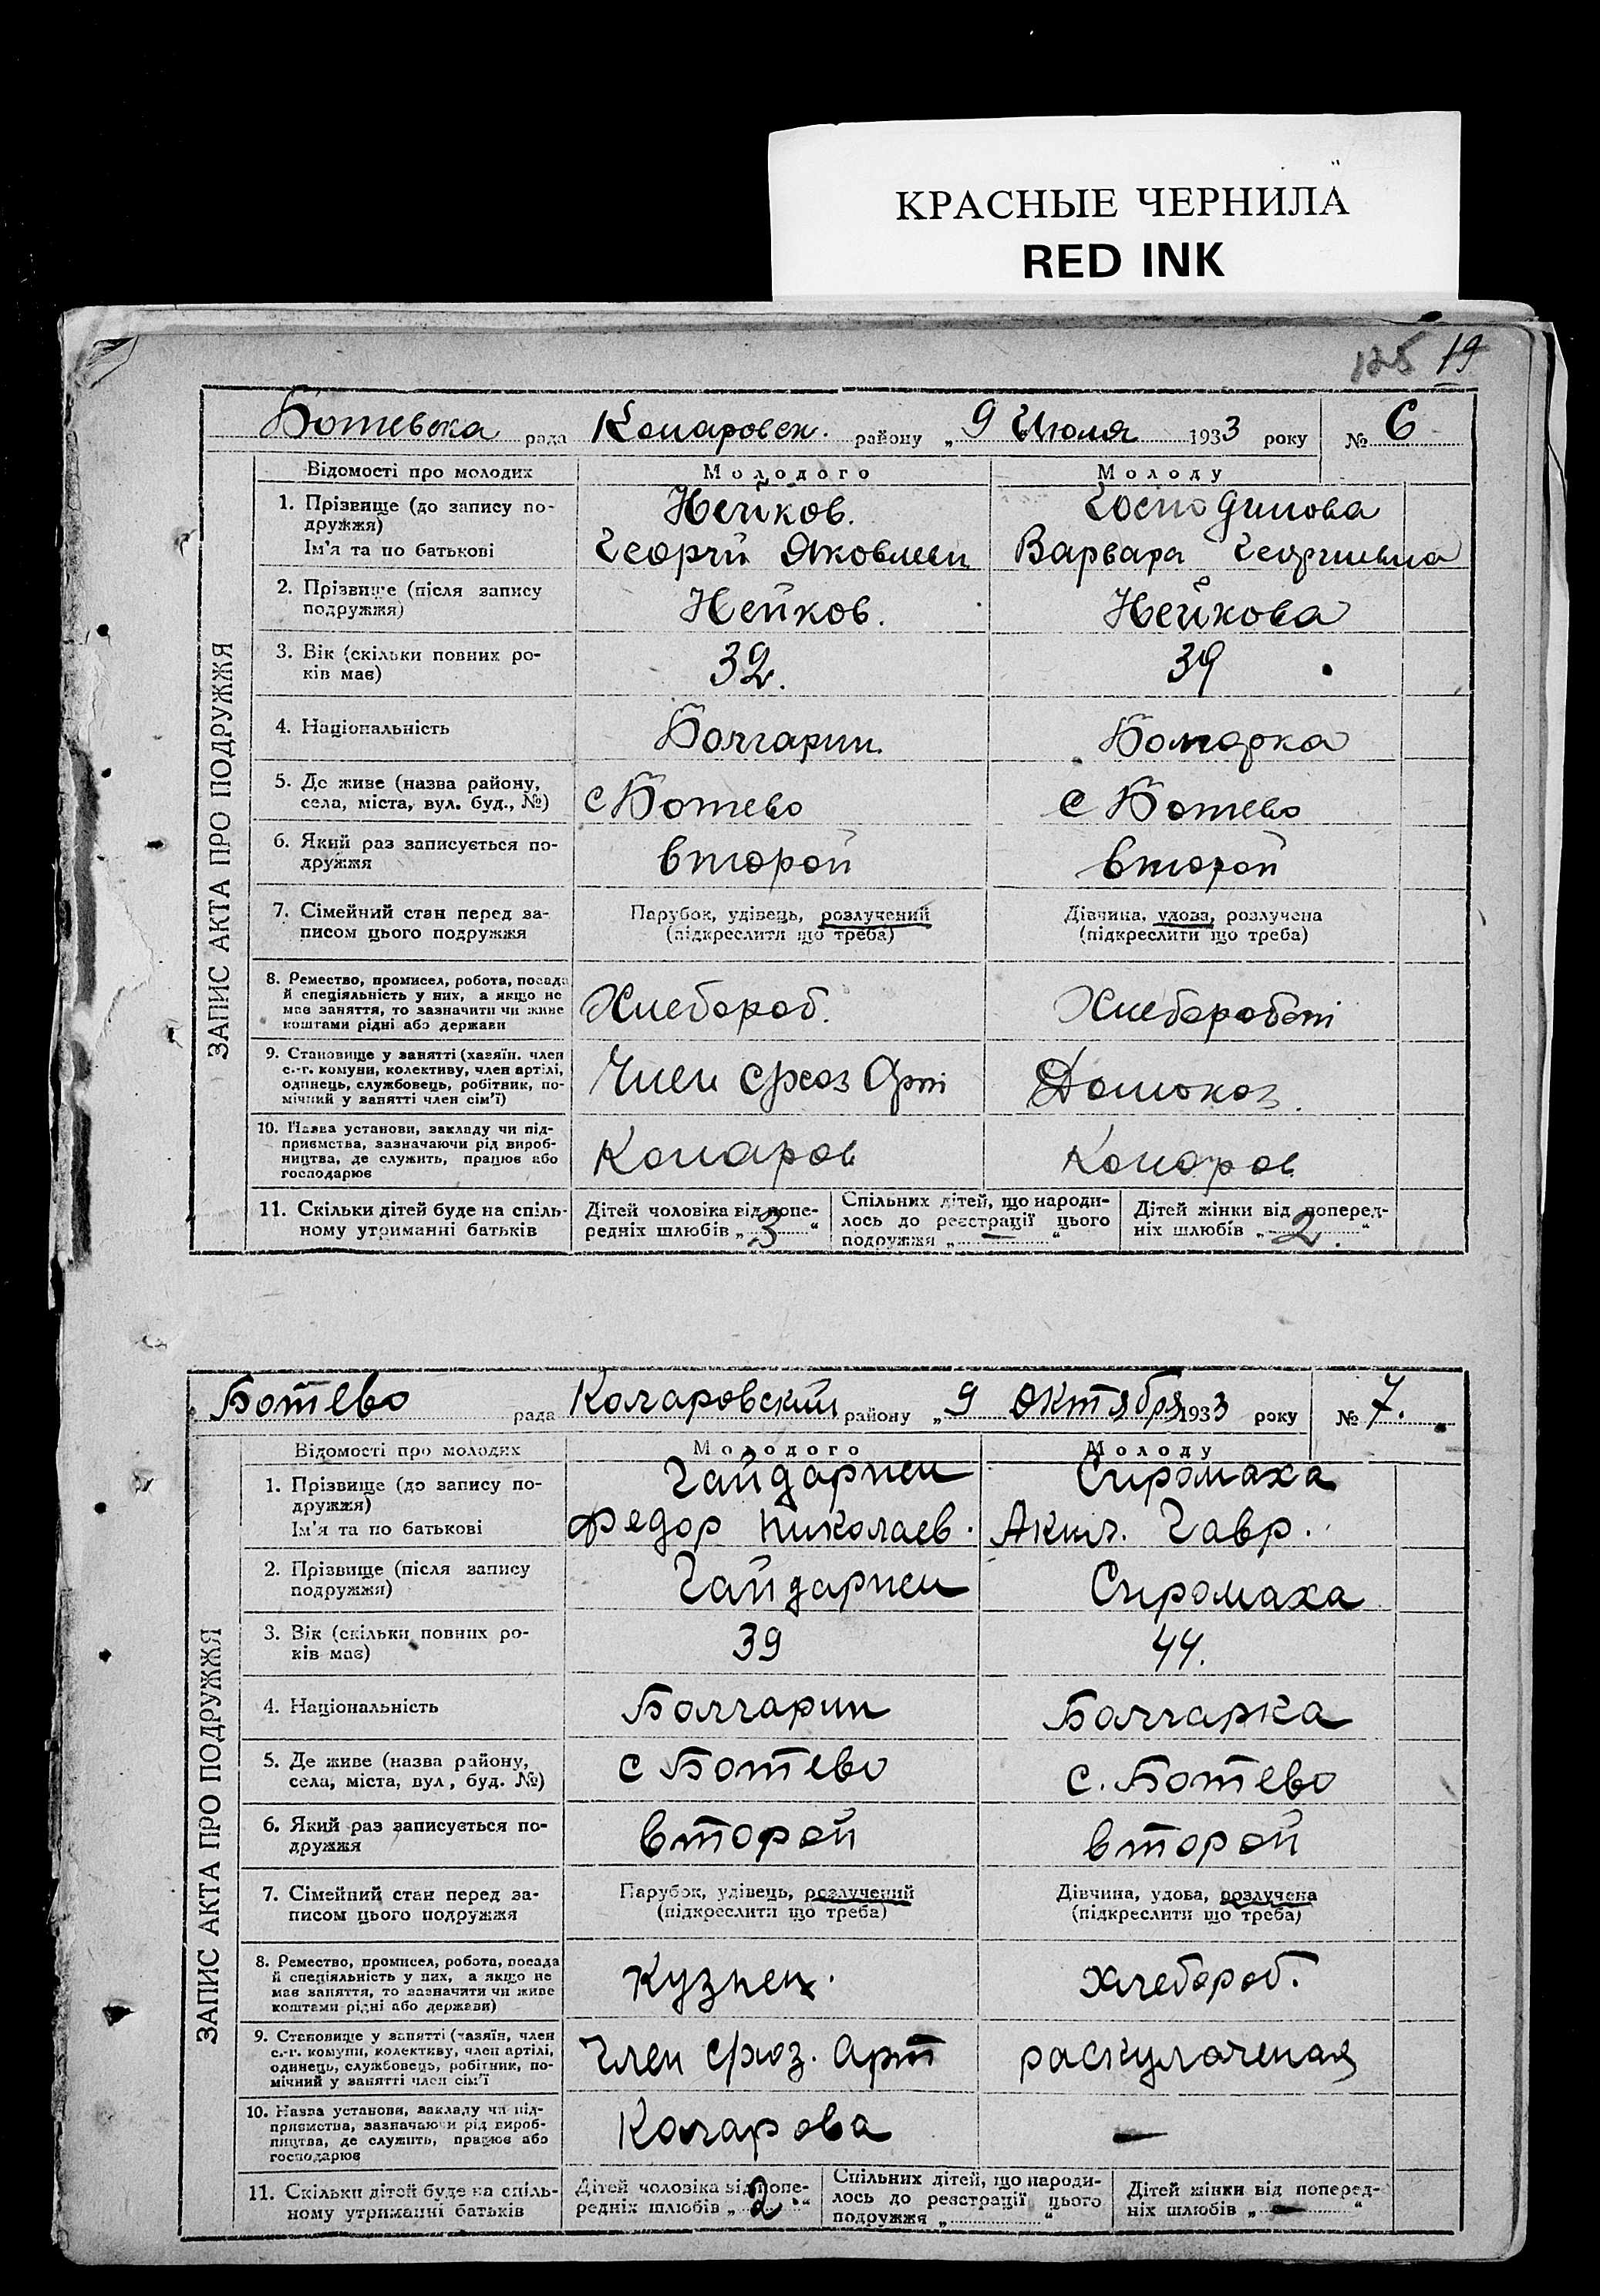 КРАСНЫЕ ЧЕРНИЛА
RED INK
125 19
Ботевска рада Коларовск. району „9 Июля 1933 року № 6
Відомості про молодих Молодого Молоду
1. Прізвище (до запису по-
дружжя)
Нейков. Господинова
Ім'я та по батькові Георгий Яковлеви Варвара Георгиевна
2. Прізвище (після запису
подружжя)
Нейков. Нейкова
3. Вік (скільки повних ро-
ків має)
32. 39
4. Національність Болгарин. Болгарка
5. Де живе (назва району,
села, міста, вул. буд., №)
с Ботево с Ботево
6. Який раз записується по-
дружжя
второй второй
7. Сімейний стан перед за-
писом цього подружжя
Парубок, удівець, розлучений
(підкреслити що треба)
Дівчина, удова, розлучена
(підкреслити що треба)
8. Ремество, промисел, робота, посада
й спеціяльність у них, а якщо не
має заняття, то зазначити чи живе
коштами рідні або держави
Хлебороб. Хлебороботі
9. Становище у занятті (хазяїн, член
с.-г. комуни, колективу, член артілі,
одинець, службовець, робітник, по-
мічний у занятті член сім'ї)
Член Арті Домохоз.
10. Назва установи, закладу чи під-
приємства, зазначаючи рід вироб-
ництва, де служить, працює або
господарює
Коларов Коларов
11. Скільки дітей буде на спіль-
ному утриманні батьків
Дітей чоловіка від попе-
редніх шлюбів „3“
Спільних дітей, що народи-
лось до реєстрації цього
подружжя „—“
Дітей жінки від поперед-
ніх шлюбів „2.“
ЗАПИС АКТА ПРО ПОДРУЖЖЯ
Ботево рада Коларовский району „9 Октября 1933 року № 7.
Відомості про молодих Молодого Молоду
1. Прізвище (до запису по-
дружжя)
Гайдаржи Сиромаха
Ім'я та по батькові Федор Николаев. Акил. Гавр.
2. Прізвище (після запису
подружжя)
Гайдаржи Сиромаха
3. Вік (скільки повних ро-
ків має)
39 44.
4. Національність Болгарин Болгарка
5. Де живе (назва району,
села, міста, вул, буд. №)
с Ботево с. Ботево
6. Який раз записується по-
дружжя
второй второй
7. Сімейний стан перед за-
писом цього подружжя
Парубок, удівець, розлучений
(підкреслити що треба)
Дівчина, удова, розлучена
(підкреслити що треба)
8. Ремество, промисел, робота, посада
й спеціяльність у них, а якщо не
має заняття, то зазначити чи живе
коштами рідні або держави)
кузнец. хлебороб.
9. Становище у занятті (хазяїн, член
с.-г. комуни, колективу, член артілі,
одинець, службовець, робітник, по-
мічний у занятті член сім'ї
Член Арт раскулаченая
10. Назва установи, закладу чи під-
приємства, зазначаючи рід вироб-
ництва, де служить, працює або
господарює
Коларова —
11. Скільки дітей буде на спіль-
ному утриманні батьків
Дітей чоловіка від попе-
редніх шлюбів „2.“
Спільних дітей, що народи-
лось до реєстрації цього
подружжя „ “
Дітей жінки від поперед-
ніх шлюбів „—“
ЗАПИС АКТА ПРО ПОДРУЖЖЯ